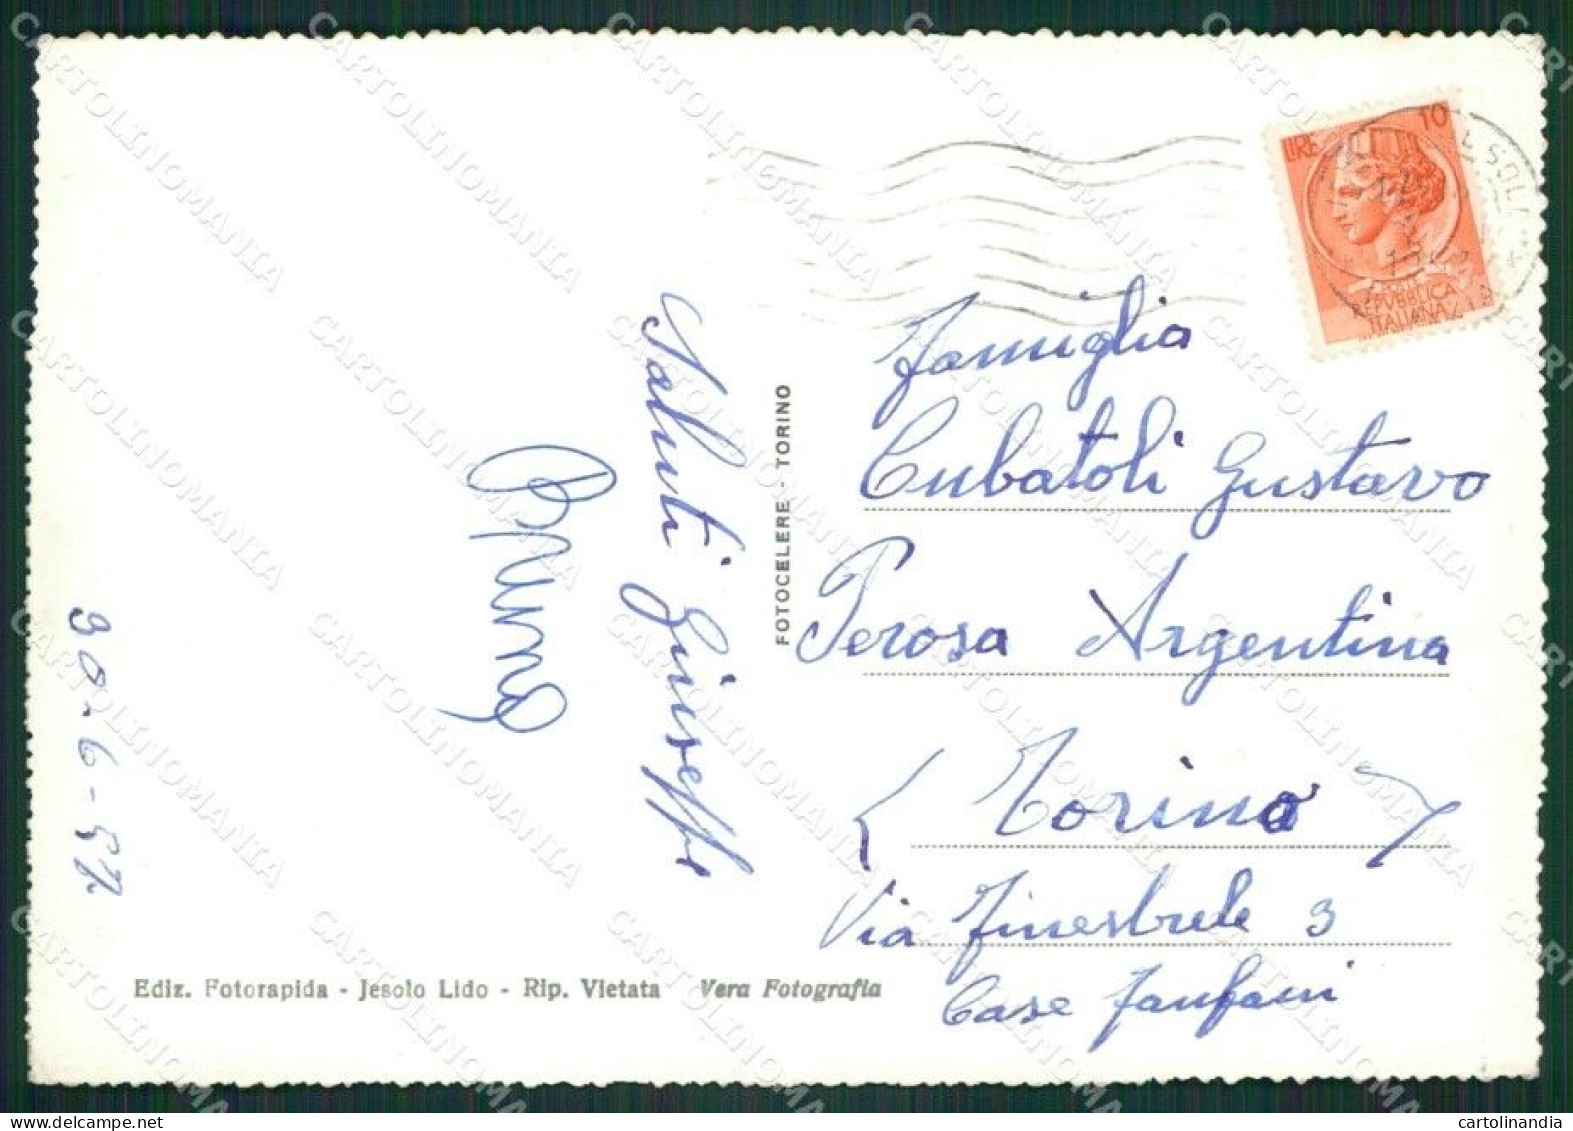 Saluti Giuseppe
Bruno
30-6-57
FOTOCELERE - TORINO
LIRE 10
REPVBBLICA
ITALIANA
Famiglia
Cubatoli Gustavo
Perosa Argentina
( Torino )
Via Finestrele 3
Case Fanfani
Ediz. Fotorapida - Jesolo Lido - Rip. Vietata Vera Fotografia
CARTOLINOMANIA
cartolinandia